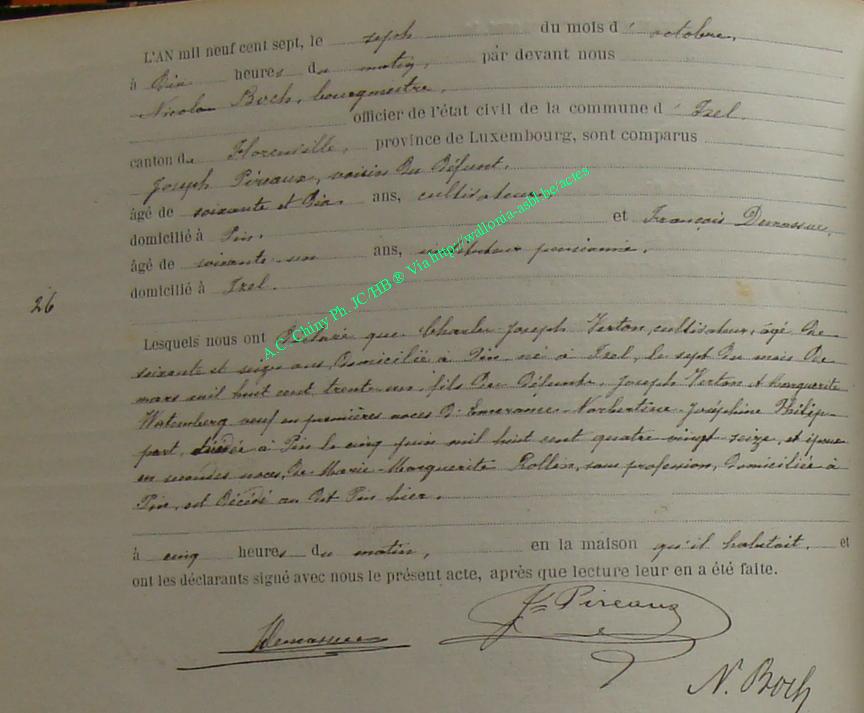 L'AN mil neuf cent sept, le sept du mois d'octobre,
à dix heures du matin, par devant nous
Nicolas Boch, bourgmestre,
officier de l'état civil de la commune d'Izel.
canton de Florenville, province de Luxembourg, sont comparus
Joseph Pireaux, voisin du défunt.
âgé de soixante et dix ans, cultivateur,
domicilié à Pin. et François Demassue,
âgé de soixante-un ans, instituteur pensionné,
domicilié à Izel.
26
Lesquels nous ont déclaré que Charles-Joseph Verton, cultivateur, âgé de
soixante et seize ans, domicilié à Pin, né à Izel, le sept du mois de
mars mil huit cent trente-un, fils des défunts Joseph Verton et Marguerite
Watemberg veuf en premières noces d' Norbertine-Joséphine Philip-
part, décédée à Pin le cinq juin mil huit cent quatre vingt-seize, et époux
en secondes noces, de Marie-Marguerite Rollin, sans profession, domiciliée à
Pin, est décédé au dit Pin hier.
à cinq heures du matin, en la maison qu'il habitait. et
ont les déclarants signé avec nous le présent acte, après que lecture leur en a été faite.
Demassue Jh Pireaux
N. Boch
A.C. Chiny Ph. JC/HB ® Via http://wallonia-asbl.be/actes